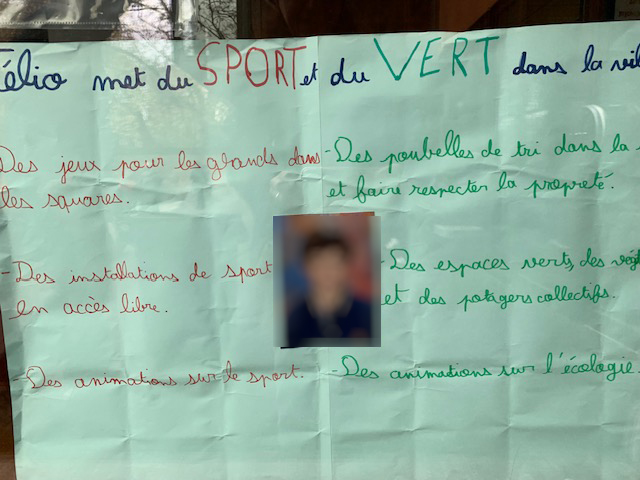 Télio met du SPORT et du VERT dans la vil
Des jeux pour les grands dans
les squares.
- Des installations de sport
en accès libre.
- Des animations sur le sport.
- Des poubelles de tri dans la
et faire respecter la propreté.
- Des espaces verts, des végé
et des potagers collectifs.
- Des animations sur l'écologie.